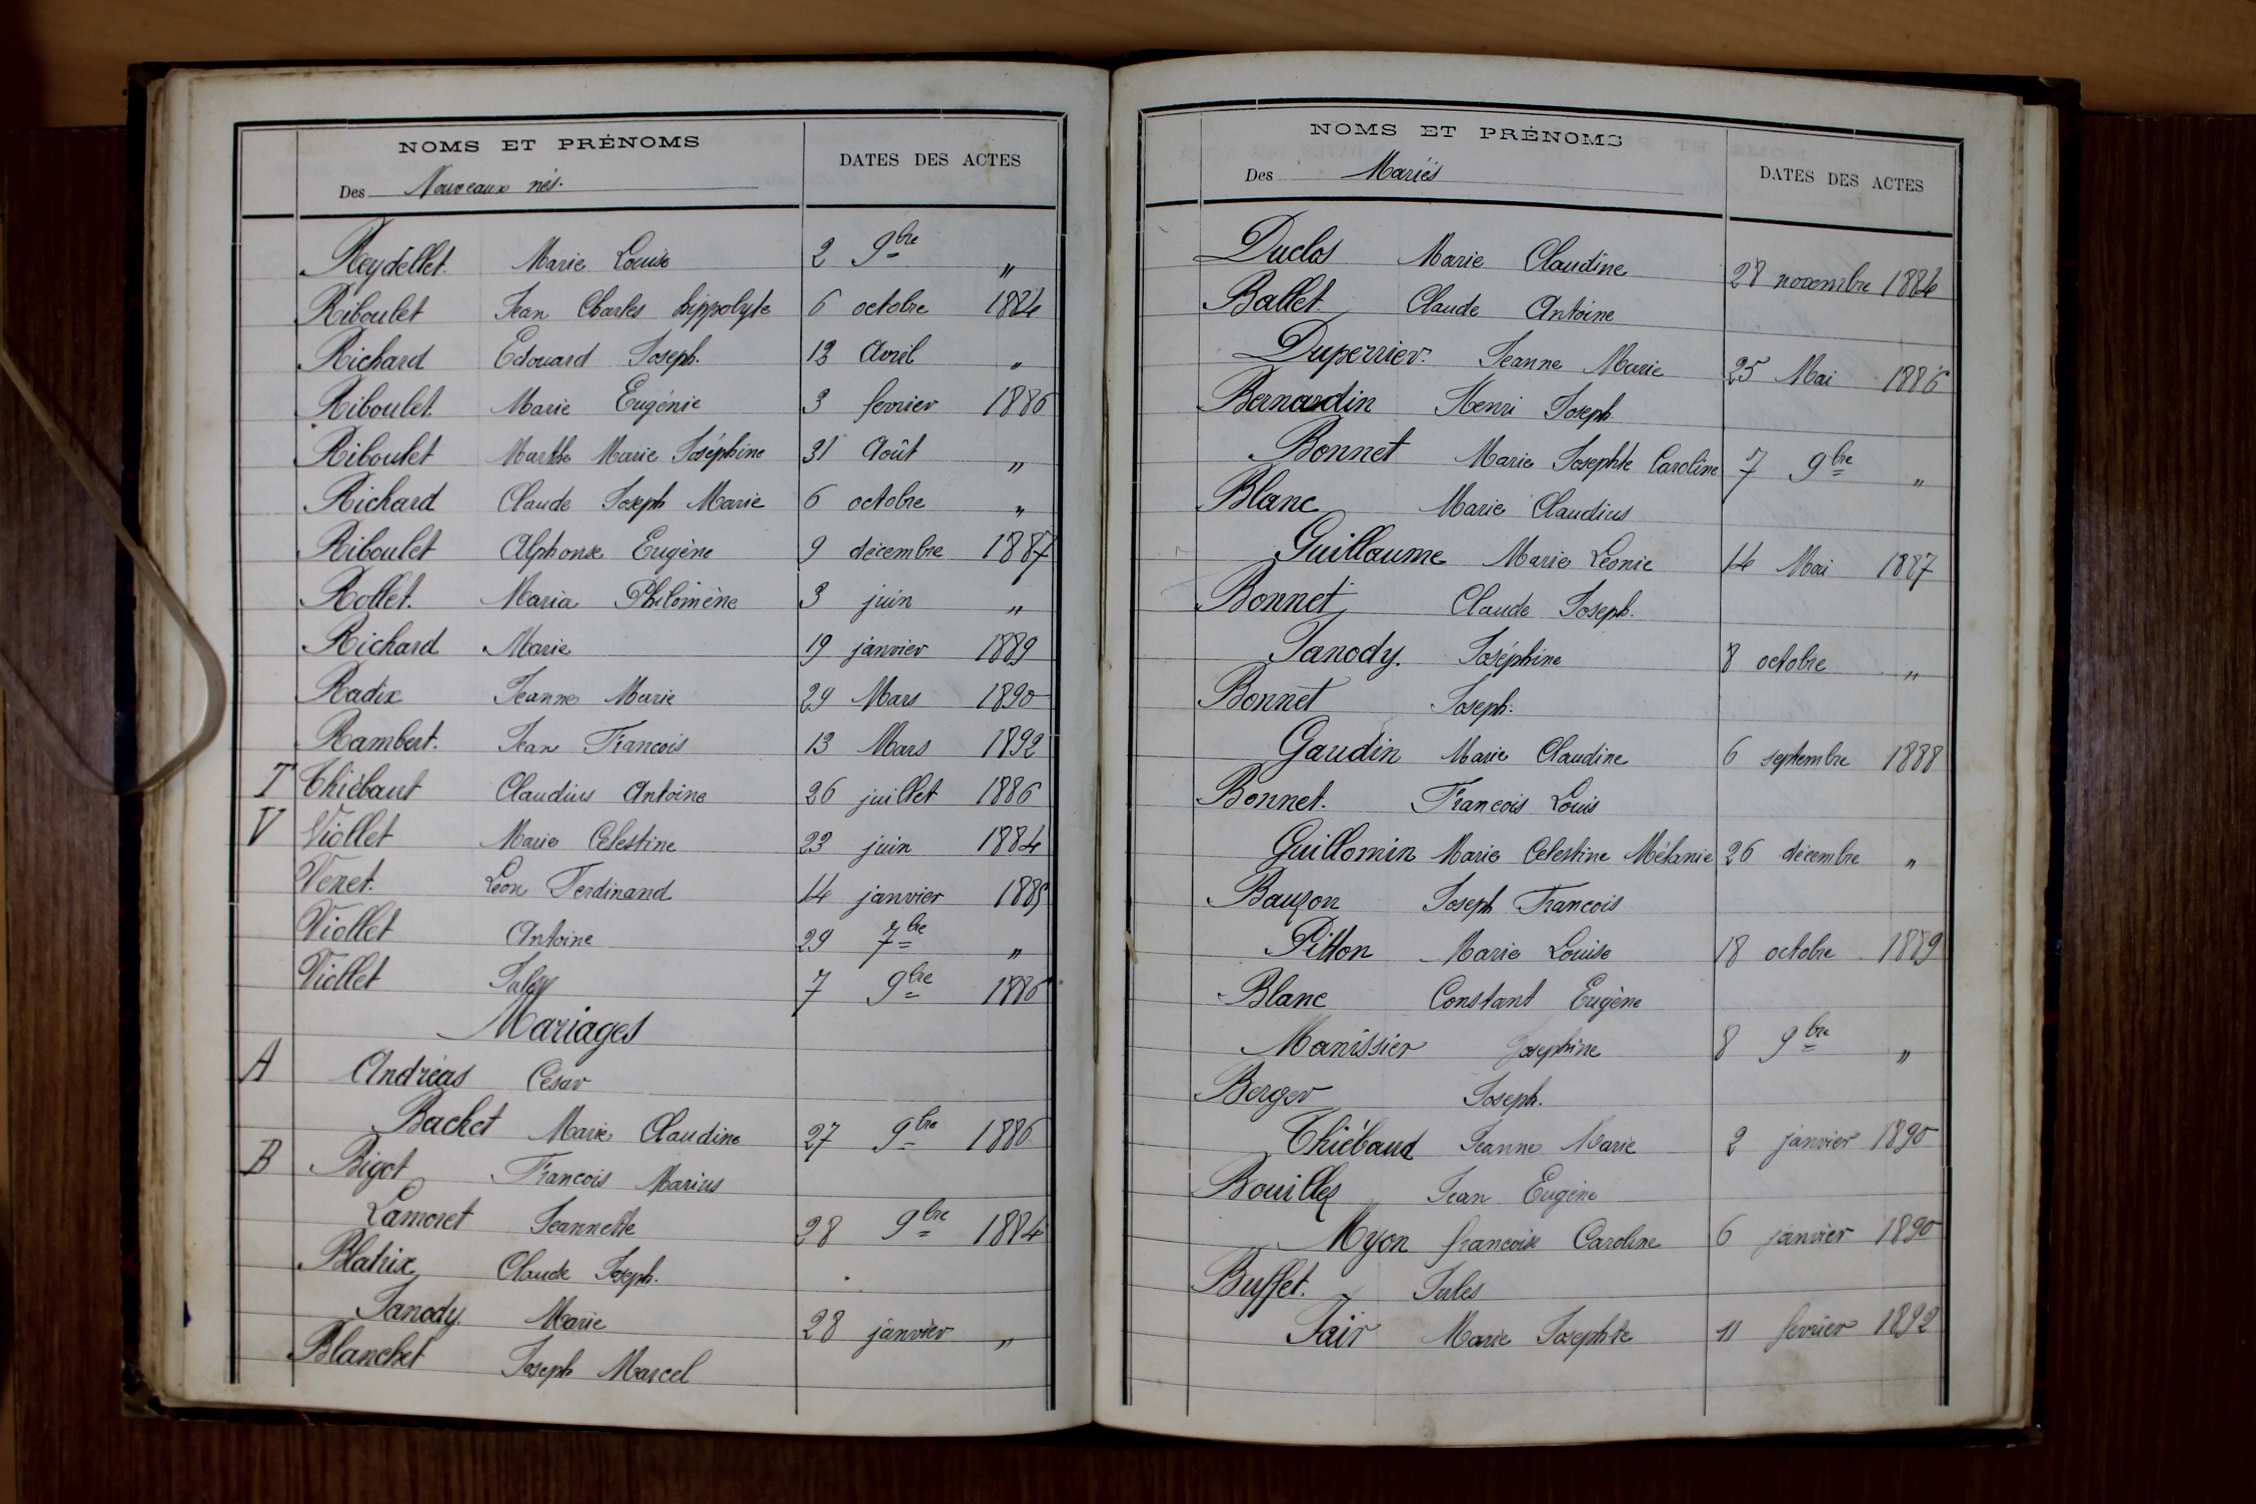 NOMS ET PRÉNOMS
DATES DES ACTES
Des Nouveaux nés.
Reydellet. Marie Louise 2 9bre "
Riboulet Jean Charles hippolyte 6 octobre 1884
Richard Edouard Joseph. 13 Avril "
Riboulet. Marie Eugénie 3 fevrier 1886
Riboulet Marthe Marie Joséphine 31 Août "
Richard Claude Joseph Marie 6 octobre "
Riboulet Alphonse Eugène 9 décembre 1887
Rollet. Maria Philomène 3 juin "
Richard Marie 19 janvier 1889
Radix Jeanne Marie 29 Mars 1890
Rambert. Jean Francois 13 Mars 1892
T Thiébaut Claudius Antoine 26 juillet 1886
V Viollet Marie Celestine 23 juin 1884
Venet. Léon Ferdinand 14 janvier 1885
Viollet Antoine 29 7bre "
Viollet 7 9bre 1886
Mariages
A Andréas César
Bachet Marie Claudine 27 9bre 1886
B Bigot Francois Marius
Lamoret Jeannette 28 9bre 1884
Blatrix Claude Joseph.
Janody Marie 28 janvier "
Blanchet Joseph Marcel
NOMS ET PRÉNOMS
DATES DES ACTES
Des Mariés
Duclos Marie Claudine 28 novembre 1884
Ballet. Claude Antoine
Duperrier. Jeanne Marie 25 Mai 1886
Bernardin Henri Joseph
Bonnet Marie Josephte Caroline 7 9bre "
Blanc Marie Claudius
Guillaume Marie Léonie 14 Mai 1887
Bonnet Claude Joseph.
Janody. Joséphine 8 octobre "
Bonnet Joseph.
Gaudin Marie Claudine 6 septembre 1888
Bonnet. Francois Louis
Guillomin Marie Celestine Mélanie 26 décembre "
Bauzon Joseph Francois
Pitton Marie Louise 18 octobre 1889
Blanc Constant Eugène
Manissier Josephine 8 9bre "
Berger Joseph.
Thiébaud Jeanne Marie 2 janvier 1890
Bouillez Jean Eugène
Myon francoise Caroline 6 janvier 1890
Buffet. Jules
Jair Marie Josephte 11 fevrier 1892